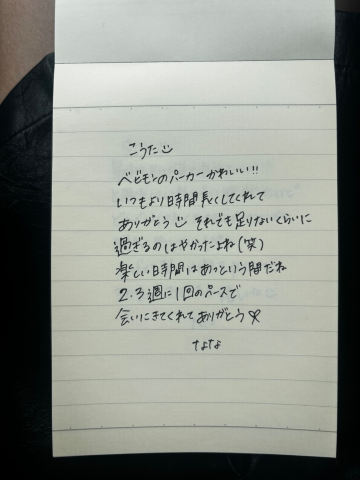 こうた☺
ベビモンのパーカーかわいい!!
いつもより時間長くしてくれて
ありがとう☺ それでも足りないくらいに
過ぎるのはやかったよね(笑)
楽しい時間はあっという間だね
2.3週に1回のペースで
会いにきてくれてありがとう♡
ななな